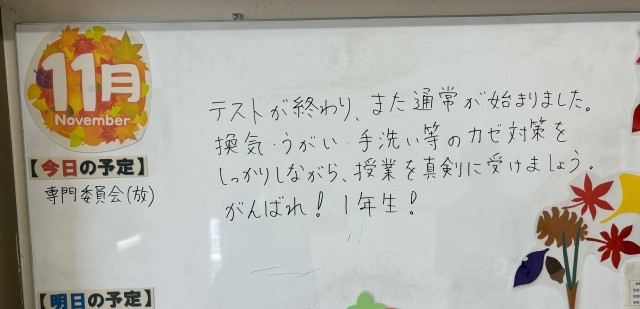 11月
November
【今日の予定】
専門委員会(放)
テストが終わり、また通常が始まりました。
換気・うがい・手洗い等のカゼ対策を
しっかりしながら、授業を真剣に受けましょう。
がんばれ!1年生!
【明日の予定】